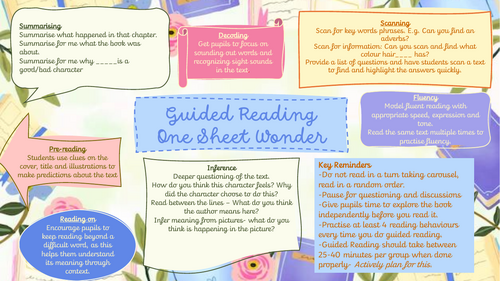 Summarising
Summarise what happened in that chapter.
Summarise for me what the book was
about.
Summarise for me why _____is a
good/bad character
Decoding
Get pupils to focus on
sounding out words and
recognizing sight sounds
in the text
Scanning
Scan for key words phrases. E.g. Can you find an
adverbs?
Scan for information: Can you scan and find what
colour hair,____ has?
Provide a list of questions and have students scan a text
to find and highlight the answers quickly.
Guided Reading
One Sheet Wonder
Fluency
Model fluent reading with
appropriate speed, expression and
tone.
Read the same text multiple times to
practise fluency.
Pre-reading
Students use clues on the
cover, title and illustrations to
make predictions about the text
Inference
Deeper questioning of the text.
How do you think this character feels? Why
did the character choose to do this?
Read between the lines – What do you think
the author means here?
Infer meaning from pictures- what do you
think is happening in the picture?
Key Reminders
-Do not read in a turn taking carousel,
read in a random order.
-Pause for questioning and discussions
-Give pupils time to explore the book
independently before you read it.
-Practise at least 4 reading behaviours
every time you do guided reading.
-Guided Reading should take between
25-40 minutes per group when done
properly- Actively plan for this.
Reading on
Encourage pupils to
keep reading beyond a
difficult word, as this
helps them understand
its meaning through
context.